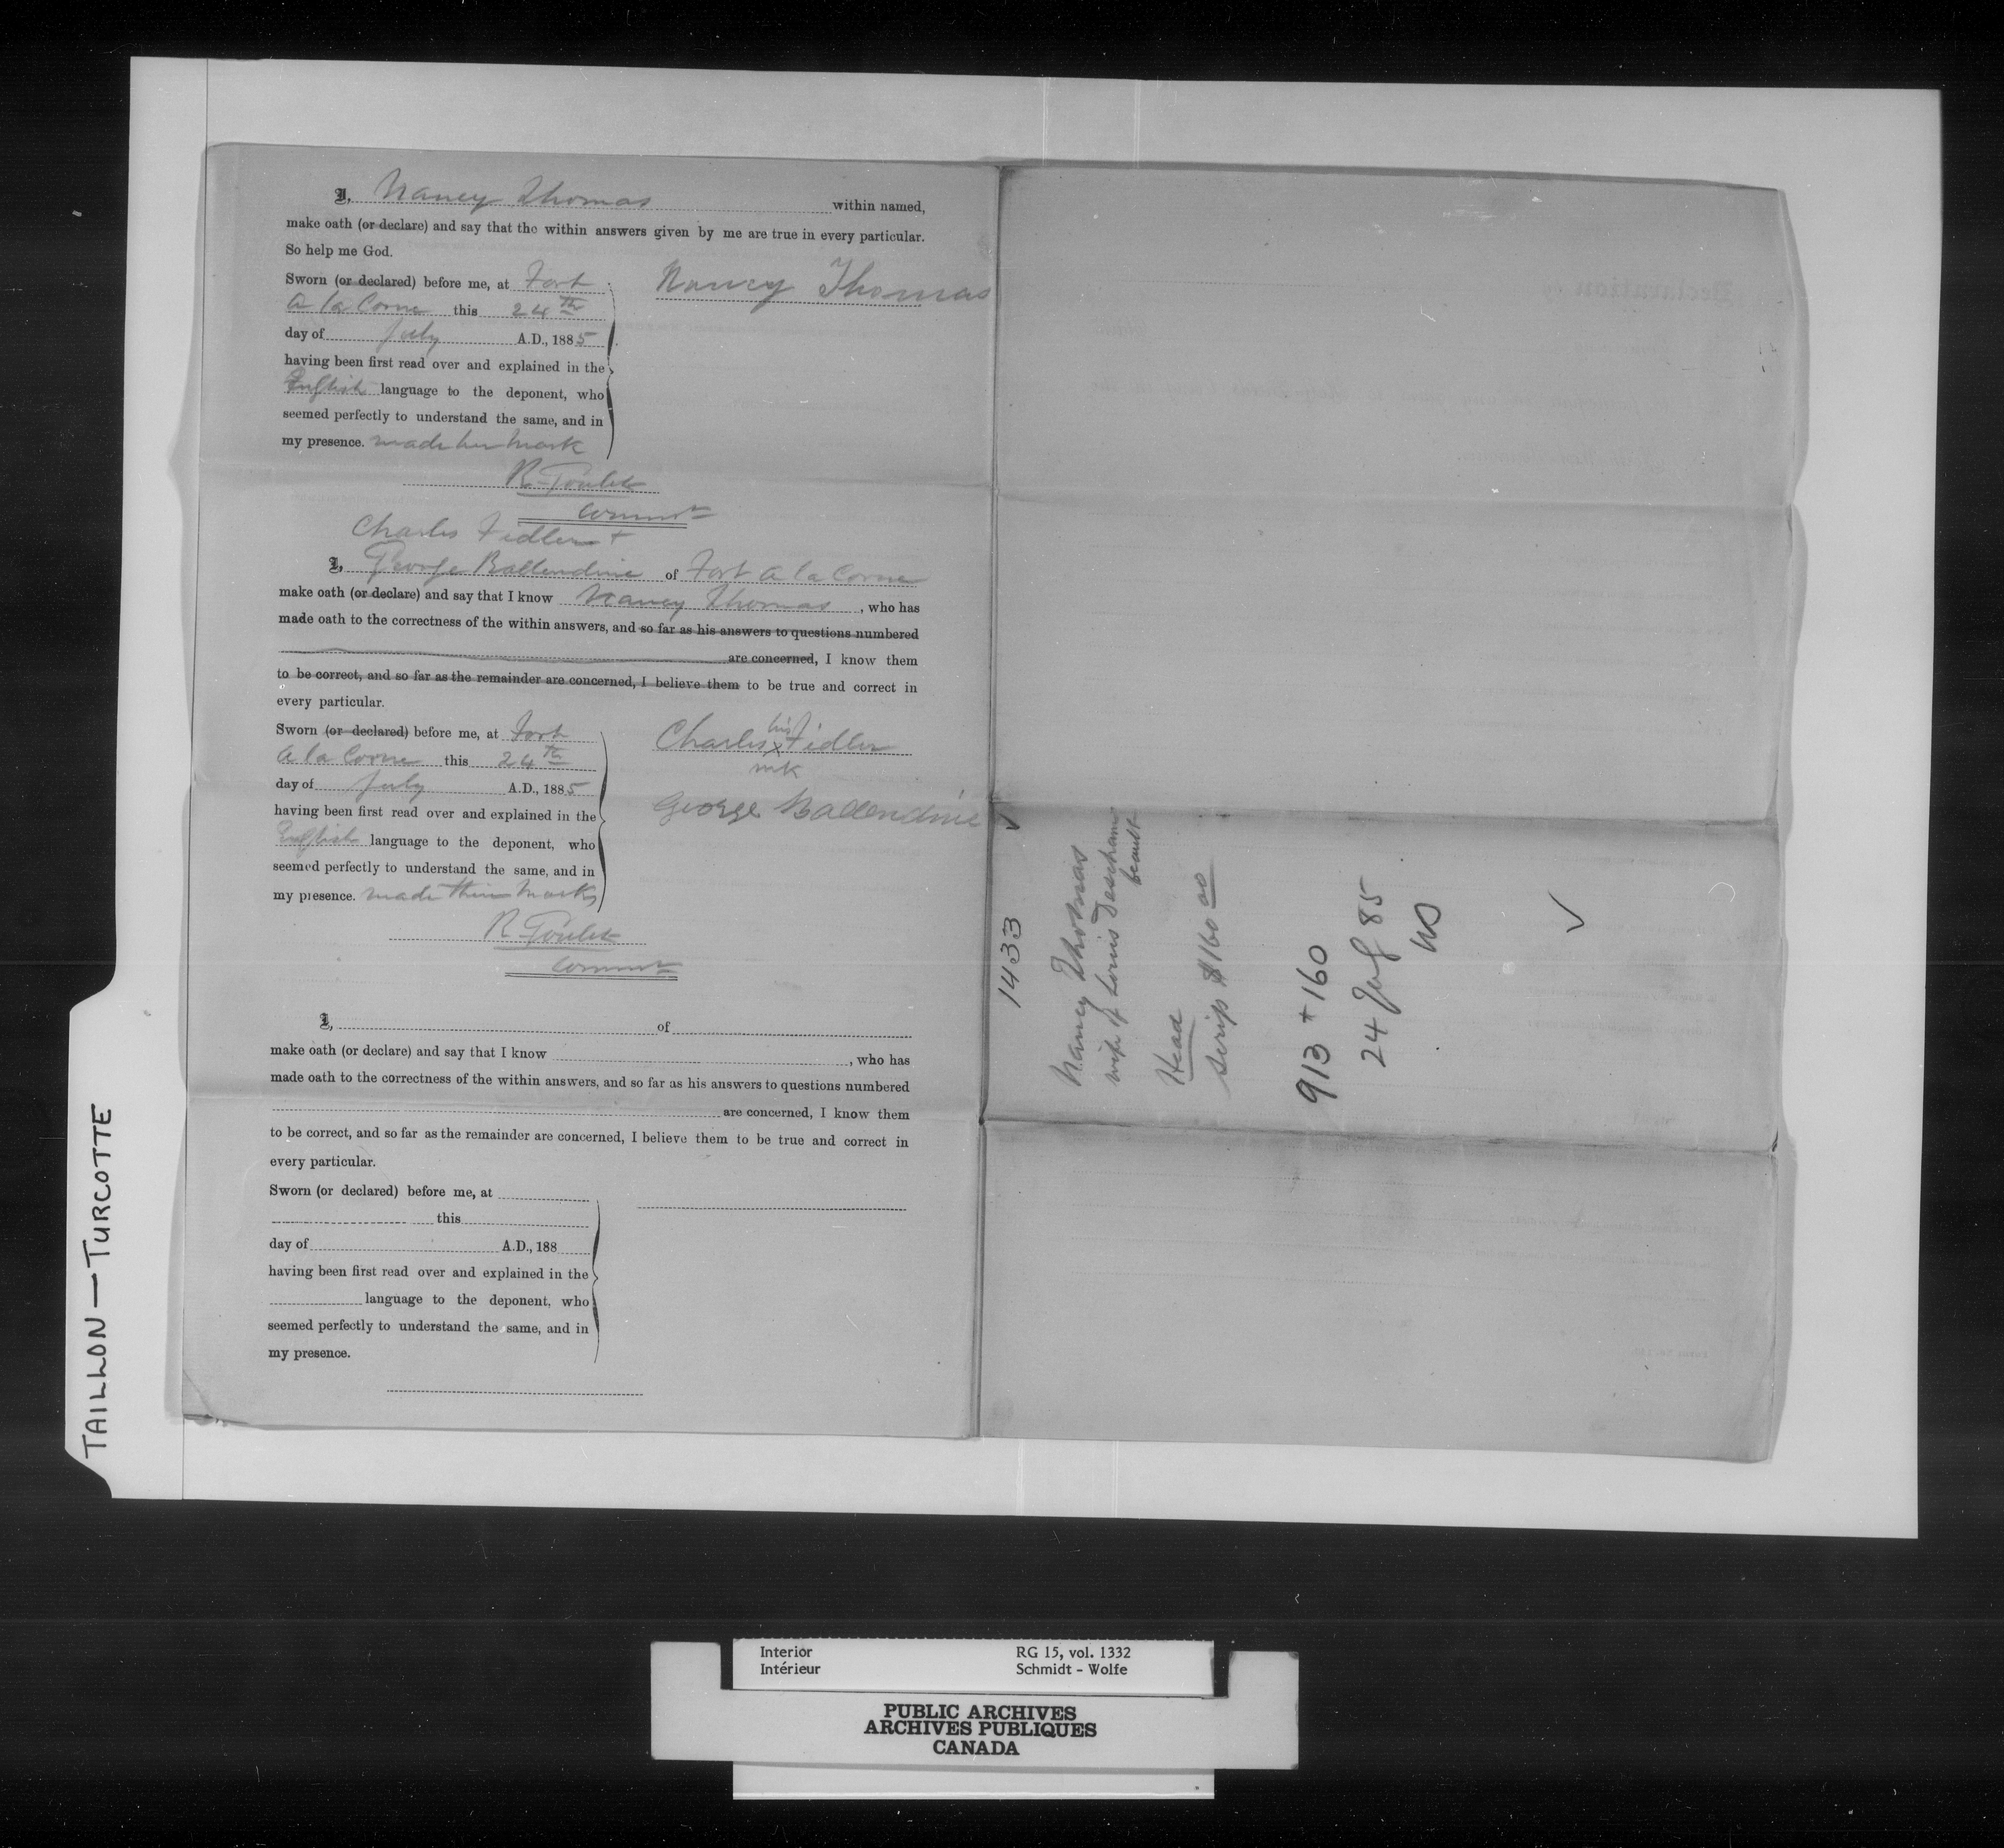 I, Nancy Thomas within named,
make oath (or declare) and say that the within answers given by me are true in every particular.
So help me God.
Sworn (or declared) before me, at Fort
a la Corne this 24th
day of July A.D., 1885
having been first read over and explained in the
English language to the deponent, who
seemed perfectly to understand the same, and in
my presence. made her mark
Nancy Thomas
R Goulet
Commr
Charles Fidler +
I, George Ballendine of Fort a la Corne
make oath (or declare) and say that I know Nancy Thomas, who has
made oath to the correctness of the within answers, and so far as his answers to questions numbered
are concerned, I know them
to be correct, and so far as the remainder are concerned, I believe them to be true and correct in
every particular.
Sworn (or declared) before me, at Fort
a la Corne this 24th
day of July A.D., 1885
having been first read over and explained in the
English language to the deponent, who
seemed perfectly to understand the same, and in
my presence. made their marks
his
Charles x Fidler
mk
George Ballendine
R Goulet
Commr
I, of
make oath (or declare) and say that I know , who has
made oath to the correctness of the within answers, and so far as his answers to questions numbered
are concerned, I know them
to be correct, and so far as the remainder are concerned, I believe them to be true and correct in
every particular.
Sworn (or declared) before me, at
this
day of A.D., 188
having been first read over and explained in the
language to the deponent, who
seemed perfectly to understand the same, and in
my presence.
1433
Nancy Thomas
wife of Louis Descham
beault
Head
Scrip $160 00
913 + 160
24 July 85
TAILLON — TURCOTTE
Interior RG 15, vol. 1332
Intérieur Schmidt - Wolfe
PUBLIC ARCHIVES
ARCHIVES PUBLIQUES
CANADA